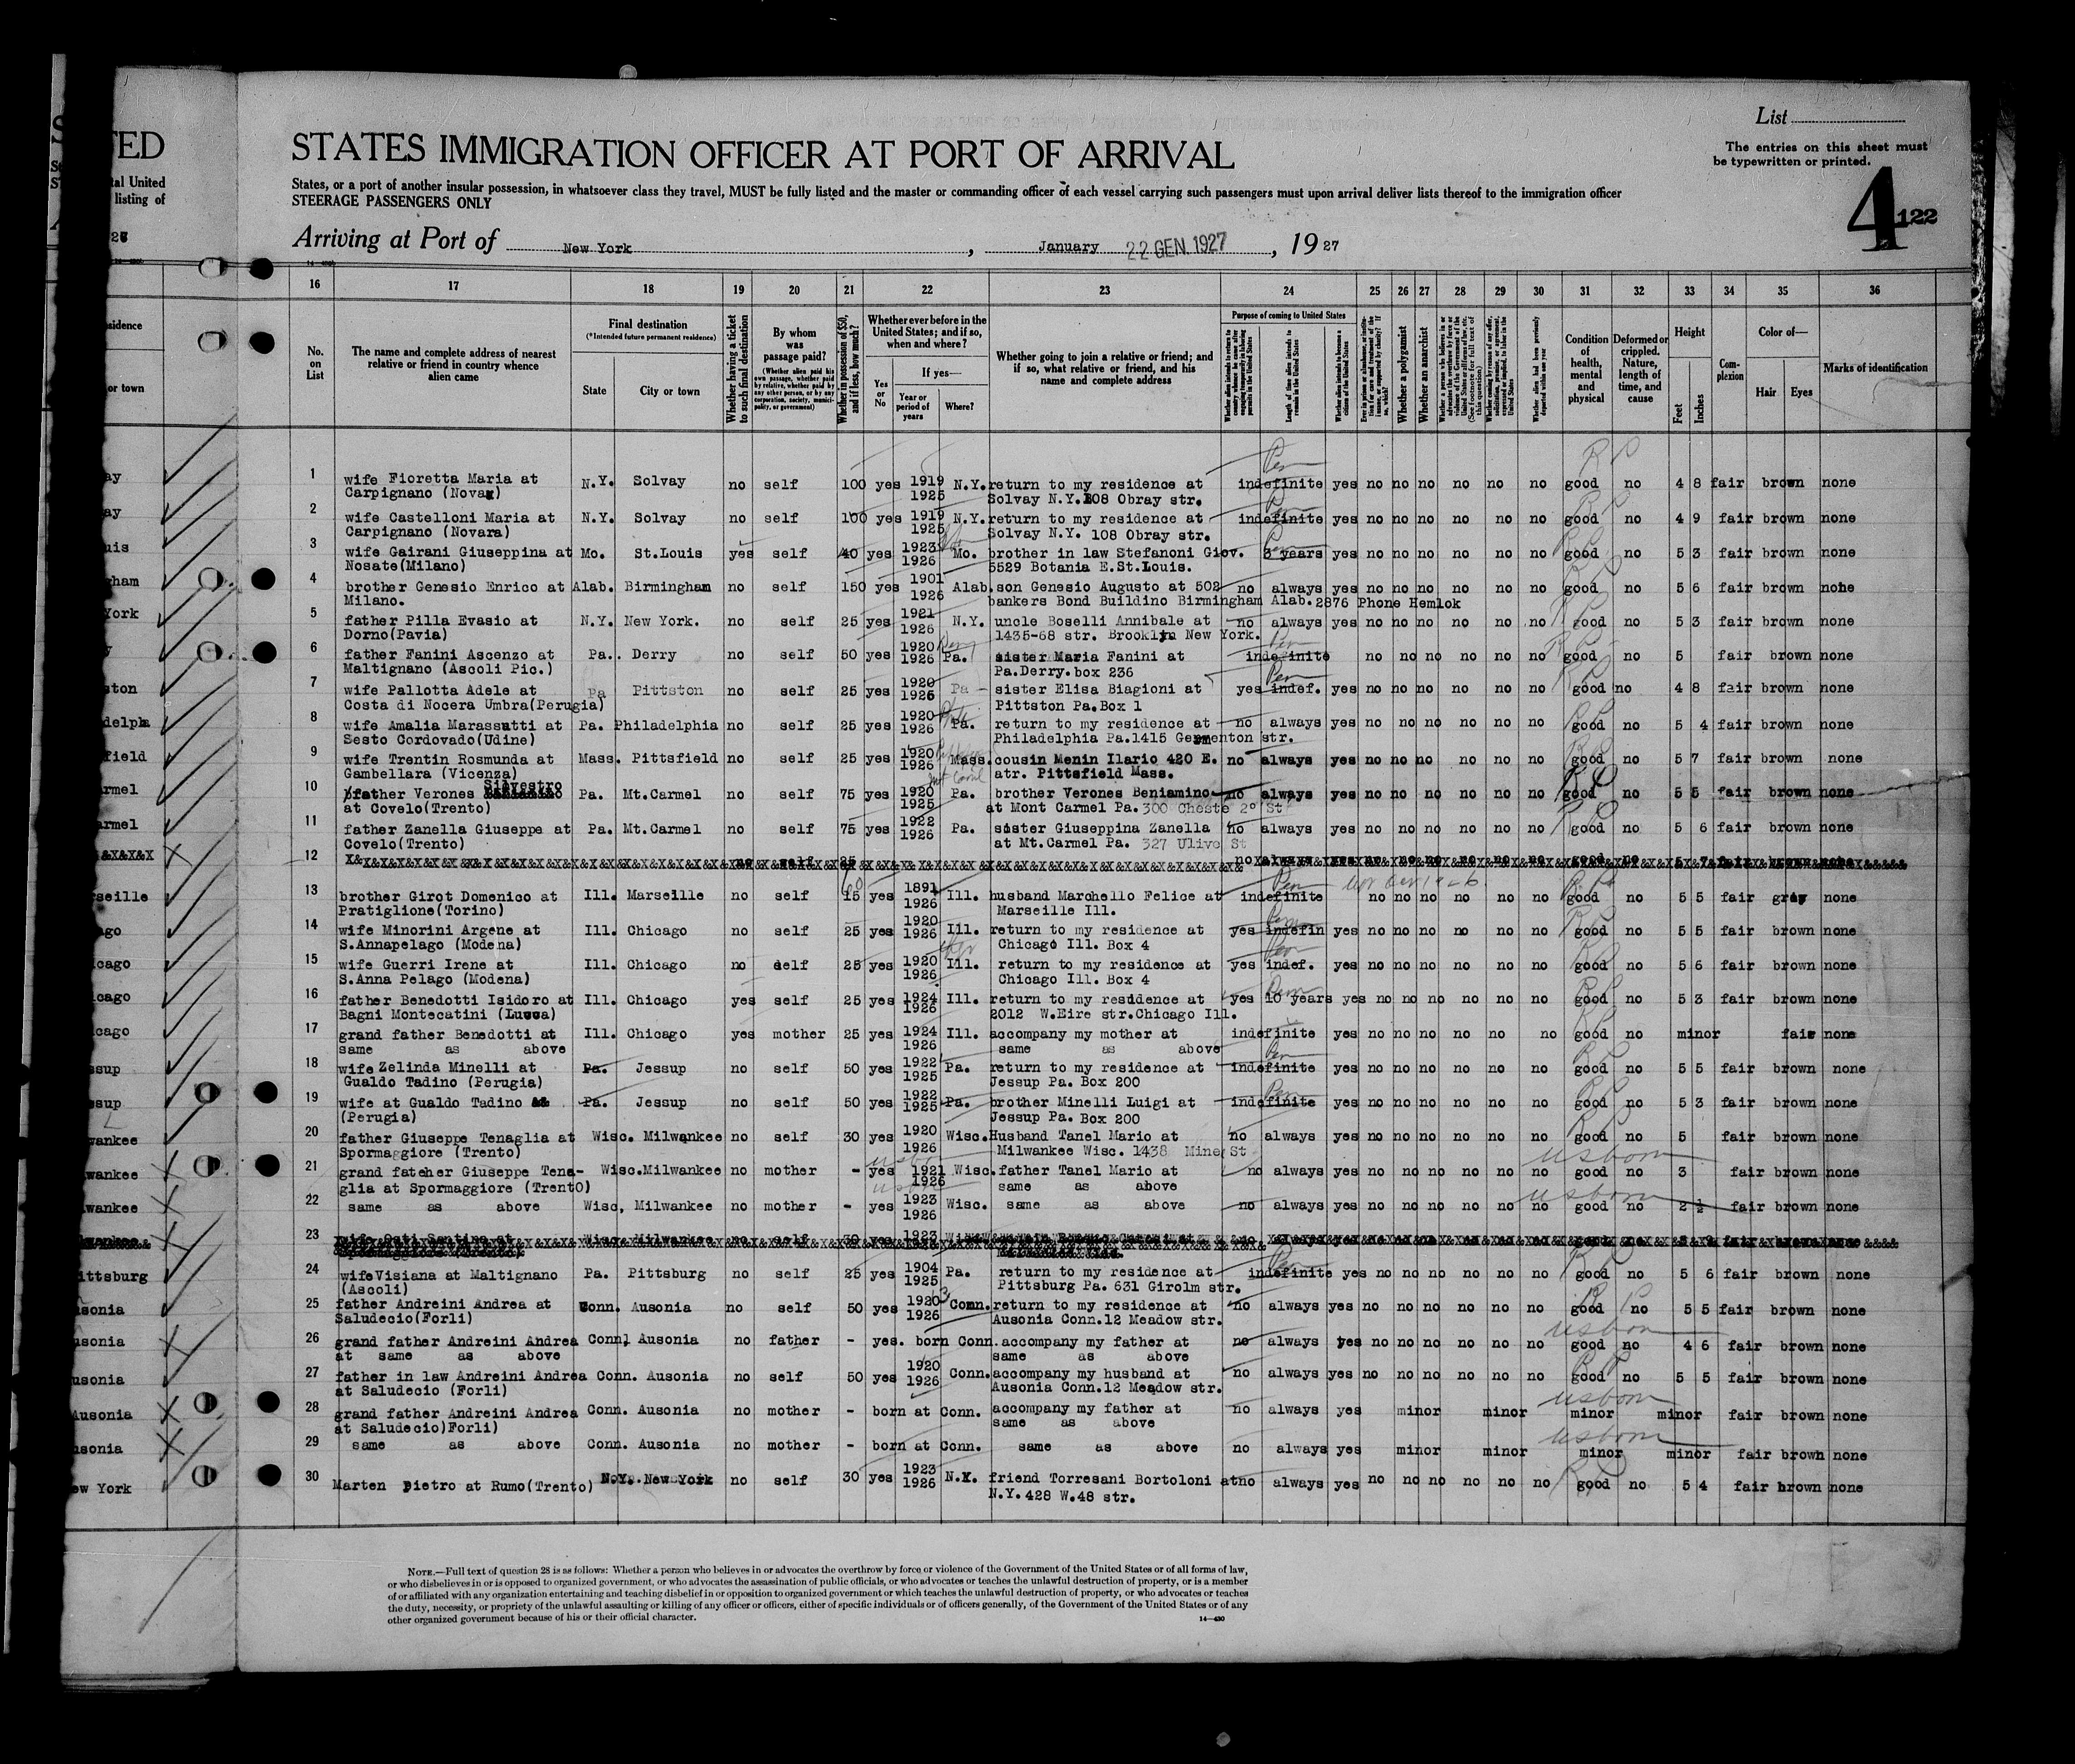 List
STATES IMMIGRATION OFFICER AT PORT OF ARRIVAL
The entries on this sheet must
be typewritten or printed.
States, or a port of another insular possession, in whatsoever class they travel, MUST be fully listed and the master or commanding officer of each vessel carrying such passengers must upon arrival deliver lists thereof to the immigration officer
STEERAGE PASSENGERS ONLY
4 122
Arriving at Port of New York, January 22 GEN. 1927, 19 27
16 17 18 19 20 21 22 23 24 25 26 27 28 29 30 31 32 33 34 35 36
No. on List
The name and complete address of nearest relative or friend in country whence alien came
Final destination
(*Intended future permanent residence)
State City or town
Whether having a ticket to such final destination
By whom was passage paid?
(Whether alien paid his own passage, whether paid by relative, whether paid by any other person, or by any corporation, society, municipality, or government)
Whether in possession of $50, and if less, how much?
Whether ever before in the United States; and if so, when and where?
Yes or No
If yes—
Year or period of years Where?
Whether going to join a relative or friend; and if so, what relative or friend, and his name and complete address
Purpose of coming to United States
Length of time alien intends to remain in the United States
Whether a polygamist
Whether an anarchist
Condition of health, mental and physical
Deformed or crippled. Nature, length of time, and cause
Height
Feet Inches
Complexion
Color of—
Hair Eyes
Marks of identification
1 wife Fioretta Maria at N.Y. Solvay no self 100 yes 1919 N.Y. return to my residence at indefinite yes no no no no no no good no 4 8 fair brown none
Carpignano (Novara) 1925 Solvay N.Y. 108 Obray str.
2 wife Castelloni Maria at N.Y. Solvay no self 100 yes 1919 N.Y. return to my residence at indefinite yes no no no no no no good no 4 9 fair brown none
Carpignano (Novara) 1925 Solvay N.Y. 108 Obray str.
3 wife Gairani Giuseppina at Mo. St.Louis yes self 40 yes 1923 Mo. brother in law Stefanoni Giov. 3 years yes no no no no no no good no 5 3 fair brown none
Nosate(Milano) 1926 5529 Botania E.St.Louis.
4 brother Genesio Enrico at Alab. Birmingham no self 150 yes 1901 Alab. son Genesio Augusto at 502 no always yes no no no no no no good no 5 6 fair brown none
Milano. 1926 bankers Bond Buildino Birmingham Alab. 2876 Phone Hemlok
5 father Pilla Evasio at N.Y. New York. no self 25 yes 1921 N.Y. uncle Boselli Annibale at no always yes no no no no no no good no 5 3 fair brown none
Dorno(Pavia) 1926 1435-68 str. Brooklin New York.
6 father Fanini Ascenzo at Pa. Derry no self 50 yes 1920 Pa. sister Maria Fanini at indefinite no no no no no no good no 5 fair brown none
Maltignano (Ascoli Pic.) 1926 Pa.Derry.box 236
7 wife Pallotta Adele at Pa Pittston no self 25 yes 1920 Pa sister Elisa Biagioni at yes indef. yes no no no no no no good no 4 8 fair brown none
Costa di Nocera Umbra(Perugia) 1926 Pittston Pa.Box 1
8 wife Amalia Marassatti at Pa. Philadelphia no self 25 yes 1920 Pa. return to my residence at no always yes no no no no no no good no 5 4 fair brown none
Sesto Cordovado(Udine) 1926 Philadelphia Pa.1415 Germenton str.
9 wife Trentin Rosmunda at Mass. Pittsfield no self 25 yes 1920 Mass. cousin Menin Ilario 420 E. no always yes no no no no no no good no 5 7 fair brown none
Gambellara (Vicenza) 1926 atr. Pittsfield Mass.
10 father Verones Silvestro Pa. Mt.Carmel no self 75 yes 1920 Pa. brother Verones Beniamino no always yes no no no no no no good no 5 5 fair brown none
at Covelo(Trento) 1925 at Mont Carmel Pa. 300 Cheste 2° St
11 father Zanella Giuseppe at Pa. Mt.Carmel no self 75 yes 1922 Pa. sister Giuseppina Zanella no always yes no no no no no no good no 5 6 fair brown none
Covelo(Trento) 1926 at Mt.Carmel Pa. 327 Ulive St
12
13 brother Girot Domenico at Ill. Marseille no self 15 yes 1891 Ill. husband Marchello Felice at indefinite no no no no no no good no 5 5 fair gray none
Pratiglione(Torino) 1926 Marseille Ill.
14 wife Minorini Argene at Ill. Chicago no self 25 yes 1920 Ill. return to my residence at yes indefin yes no no no no no no good no 5 5 fair brown none
S.Annapelago (Modena) 1926 Chicago Ill. Box 4
15 wife Guerri Irene at Ill. Chicago no delf 25 yes 1920 Ill. return to my residence at yes indef. yes no no no no no no good no 5 6 fair brown none
S.Anna Pelago (Modena) 1926 Chicago Ill. Box 4
16 father Benedotti Isidoro at Ill. Chicago yes self 25 yes 1924 Ill. return to my residence at yes 10 years yes no no no no no no good no 5 3 fair brown none
Bagni Montecatini (Lucca) 1926 2012 W.Eire str.Chicago Ill.
17 grand father Benedotti at Ill. Chicago yes mother 25 yes 1924 Ill. accompany my mother at indefinite yes no no no no no no good no minor fair none
same as above 1926 same as above
18 wife Zelinda Minelli at Pa. Jessup no self 50 yes 1922 Pa. return to my residence at indefinite yes no no no no no no good no 5 5 fair brown none
Gualdo Tadino (Perugia) 1925 Jessup Pa. Box 200
19 wife at Gualdo Tadino Pa. Jessup no self 50 yes 1922 Pa. brother Minelli Luigi at indefinite yes no no no no no no good no 5 3 fair brown none
(Perugia) 1925 Jessup Pa. Box 200
20 father Giuseppe Tenaglia at Wisc. Milwankee no self 30 yes 1920 Wisc. Husband Tanel Mario at no always yes no no no no no no good no 5 fair brown none
Spormaggiore (Trento) 1926 Milwankee Wisc. 1438 Mine St
21 grand fatcher Giuseppe Tena- Wisc.Milwankee no mother - yes 1921 Wisc. father Tanel Mario at no always yes no no no no no no good no 3 fair brown none
glia at Spormaggiore (TrentO) 1926 same as above usborn
22 same as above Wisc, Milwankee no mother - yes 1923 Wisc. same as above no always yes no no no no no no good no 2 ½ fair brown none
1926 usborn
23
24 wife Visiana at Maltignano Pa. Pittsburg no self 25 yes 1904 Pa. return to my residence at indefinite yes no no no no no no good no 5 6 fair brown none
(Ascoli) 1925 Pittsburg Pa. 631 Girolm str.
25 father Andreini Andrea at Conn. Ausonia no self 50 yes 1920 Conn. return to my residence at no always yes no no no no no no good no 5 5 fair brown none
Saludecio(Forli) 1926 Ausonia Conn.12 Meadow str.
26 grand father Andreini Andrea Conn, Ausonia no father - yes. born Conn. accompany my father at no always yes no no no no no no good no 4 6 fair brown none
at same as above same as above usborn
27 father in law Andreini Andrea Conn. Ausonia no self 50 yes 1920 Conn. accompany my husband at no always yes no no no no no no good no 5 5 fair brown none
at Saludecio (Forli) 1926 Ausonia Conn.12 Meadow str.
28 grand father Andreini Andrea Conn. Ausonia no mother - born at Conn. accompany my father at no always yes minor minor minor minor fair brown none
at Saludecio)Forli) same as above usborn
29 same as above Conn. Ausonia no mother - born at Conn. same as above no always yes minor minor minor minor fair brown none
usborn
30 Marten Pietro at Rumo(Trento) N.Y. New York no self 30 yes 1923 N.Y. friend Torresani Bortoloni at no always yes no no no no no no good no 5 4 fair brown none
1926 N.Y. 428 W.48 str.
NOTE.—Full text of question 28 is as follows: Whether a person who believes in or advocates the overthrow by force or violence of the Government of the United States or of all forms of law,
or who disbelieves in or is opposed to organized government, or who advocates the assassination of public officials, or who advocates or teaches the unlawful destruction of property, or is a member
of or affiliated with any organization entertaining and teaching disbelief in or opposition to organized government or which teaches the unlawful destruction of property, or who advocates or teaches
the duty, necessity, or propriety of the unlawful assaulting or killing of any officer or officers, either of specific individuals or of officers generally, of the Government of the United States or of any
other organized government because of his or their official character.
14—430